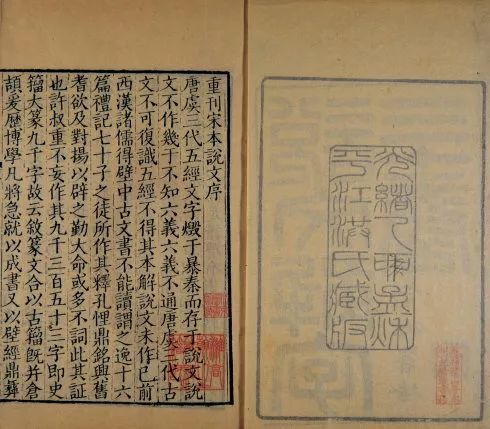 平江洪氏臧版
重刊宋本說文序
唐虞三代五經文字燬于暴秦而存于說文說
文不作幾于不知六義六義不通唐虞三代古
文不可復識五經不得其本解說文未作已前
西漢諸儒得壁中古文書不能讀謂之逸十六
篇禮記七十子之徒所作其釋孔悝鼎銘興舊
耆欲及對揚以辟之勤大命或多不詞此其證
也許叔重不妄作其九千三百五十三字即史
籀大篆九千字故云敘篆文合以古籀既并倉
頡爰歷博學凡將急就以成書又以壁經鼎彝